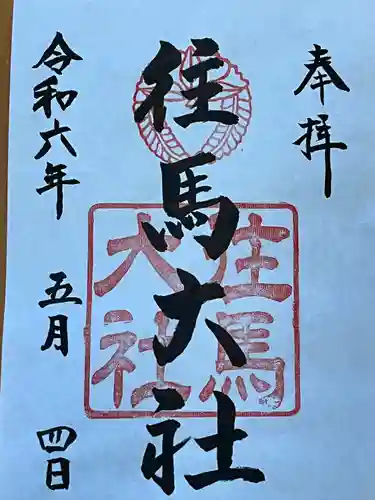 奉拝
往馬大社
往馬
大社
令和六年
五月
四日